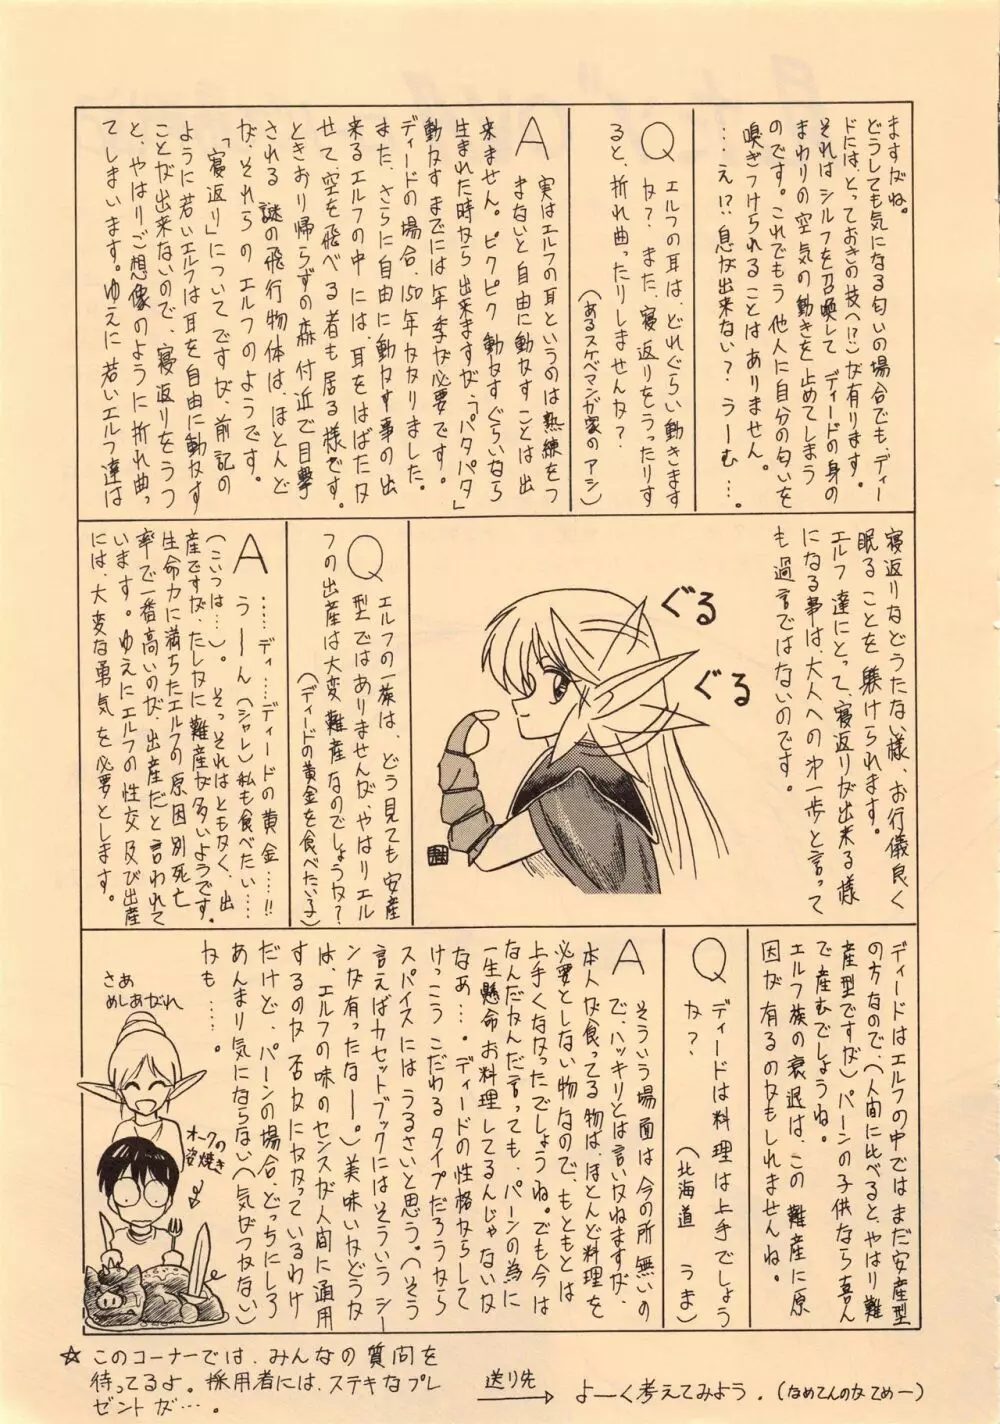 ますがね。
どうしても気になる匂いの場合でも、ディー
ドには、とっておきの技(へ!?)が有ります。
それはシルフを召喚して ディードの身の
まわりの空気の動きを止めてしまう
のです。これでもう他人に自分の匂いを
嗅ぎつけられることはありません。
…え!?息が出来ない?うーむ…。
Q エルフの耳は、どれぐらい動きます
か?また、寝返りをうったりす
ると、折れ曲ったりしませんか?
(あるスケベマンガ家のアシ)
A 実はエルフの耳というのは熟練をつ
まないと自由に動かすことは出
来ません。ピクピク動かすぐらいなら
生まれた時から出来ますが、「パタパタ」
動かすまでには年季が必要です。
ディードの場合、150年かかりました。
また、さらに自由に動かす事の出
来るエルフの中には、耳をはばたか
せて、空を飛べる者も居る様です。
ときおり帰らずの森付近で目撃
される謎の飛行物体は、ほとんど
が、それらのエルフのようです。
「寝返り」についてですが、前記の
ように若いエルフは耳を自由に動かす
ことが出来ないので、寝返りをうつ
と、やはりご想像のように折れ曲っ
てしまいます。ゆえに若いエルフ達は
寝返りなどうたない様、お行儀良く
眠ることを躾けられます。
エルフ達にとって、寝返りが出来る様
になる事は、大人への第一歩と言って
も過言ではないのです。
ぐる
ぐる
Q エルフの一族は、どう見ても安産
型ではありませんが、やはりエル
フの出産は大変難産なのでしょうか?
(ディードの黄金を食べたい子)
A ……ディ……ディードの黄金……!!
うーーん(シャレ)私も食べたい……
(こいつは…)。そっそれはともかく、出
産ですが、たしかに難産が多いようです。
生命力に満ちたエルフの原因別死亡
率で一番高いのが、出産だと言われて
います。ゆえにエルフの性交及び出産
には、大変な勇気を必要とします。
ディードはエルフの中ではまだ安産型
の方なので、(人間に比べると、やはり難
産型ですが)パーンの子供なら喜ん
で産むでしょうね。
エルフ族の衰退は、この難産に原
因が有るのかもしれませんね。
Q ディードは料理は上手でしょう
か?
(北海道 うま)
A そういう場面は今の所無いの
で、ハッキリとは言いかねますが、
本人が食ってる物は、ほとんど料理を
必要としない物なので、もともとは
上手くなかったでしょうね。でも今は
なんだかんだ言っても、パーンの為に
一生懸命お料理してるんじゃないか
なぁ…。ディードの性格からして
けっこうこだわるタイプだろうから
スパイスにはうるさいと思う。(そう
言えばカセットブックにはそういうシー
ンが有ったなー。)美味いかどうか
は、エルフの味のセンスが人間に通用
するのか否かにかかっているわけ
だけど、パーンの場合、どっちにしろ
あんまり気にならない(気がつかない)
かも……。
さあ
めしあがれ
オークの
姿焼き
☆ このコーナーでは、みんなの質問を
待ってるよ。採用者には、ステキなプレ
ゼントが…。
送り先
よーく考えてみよう。(なめてんのかてめー)